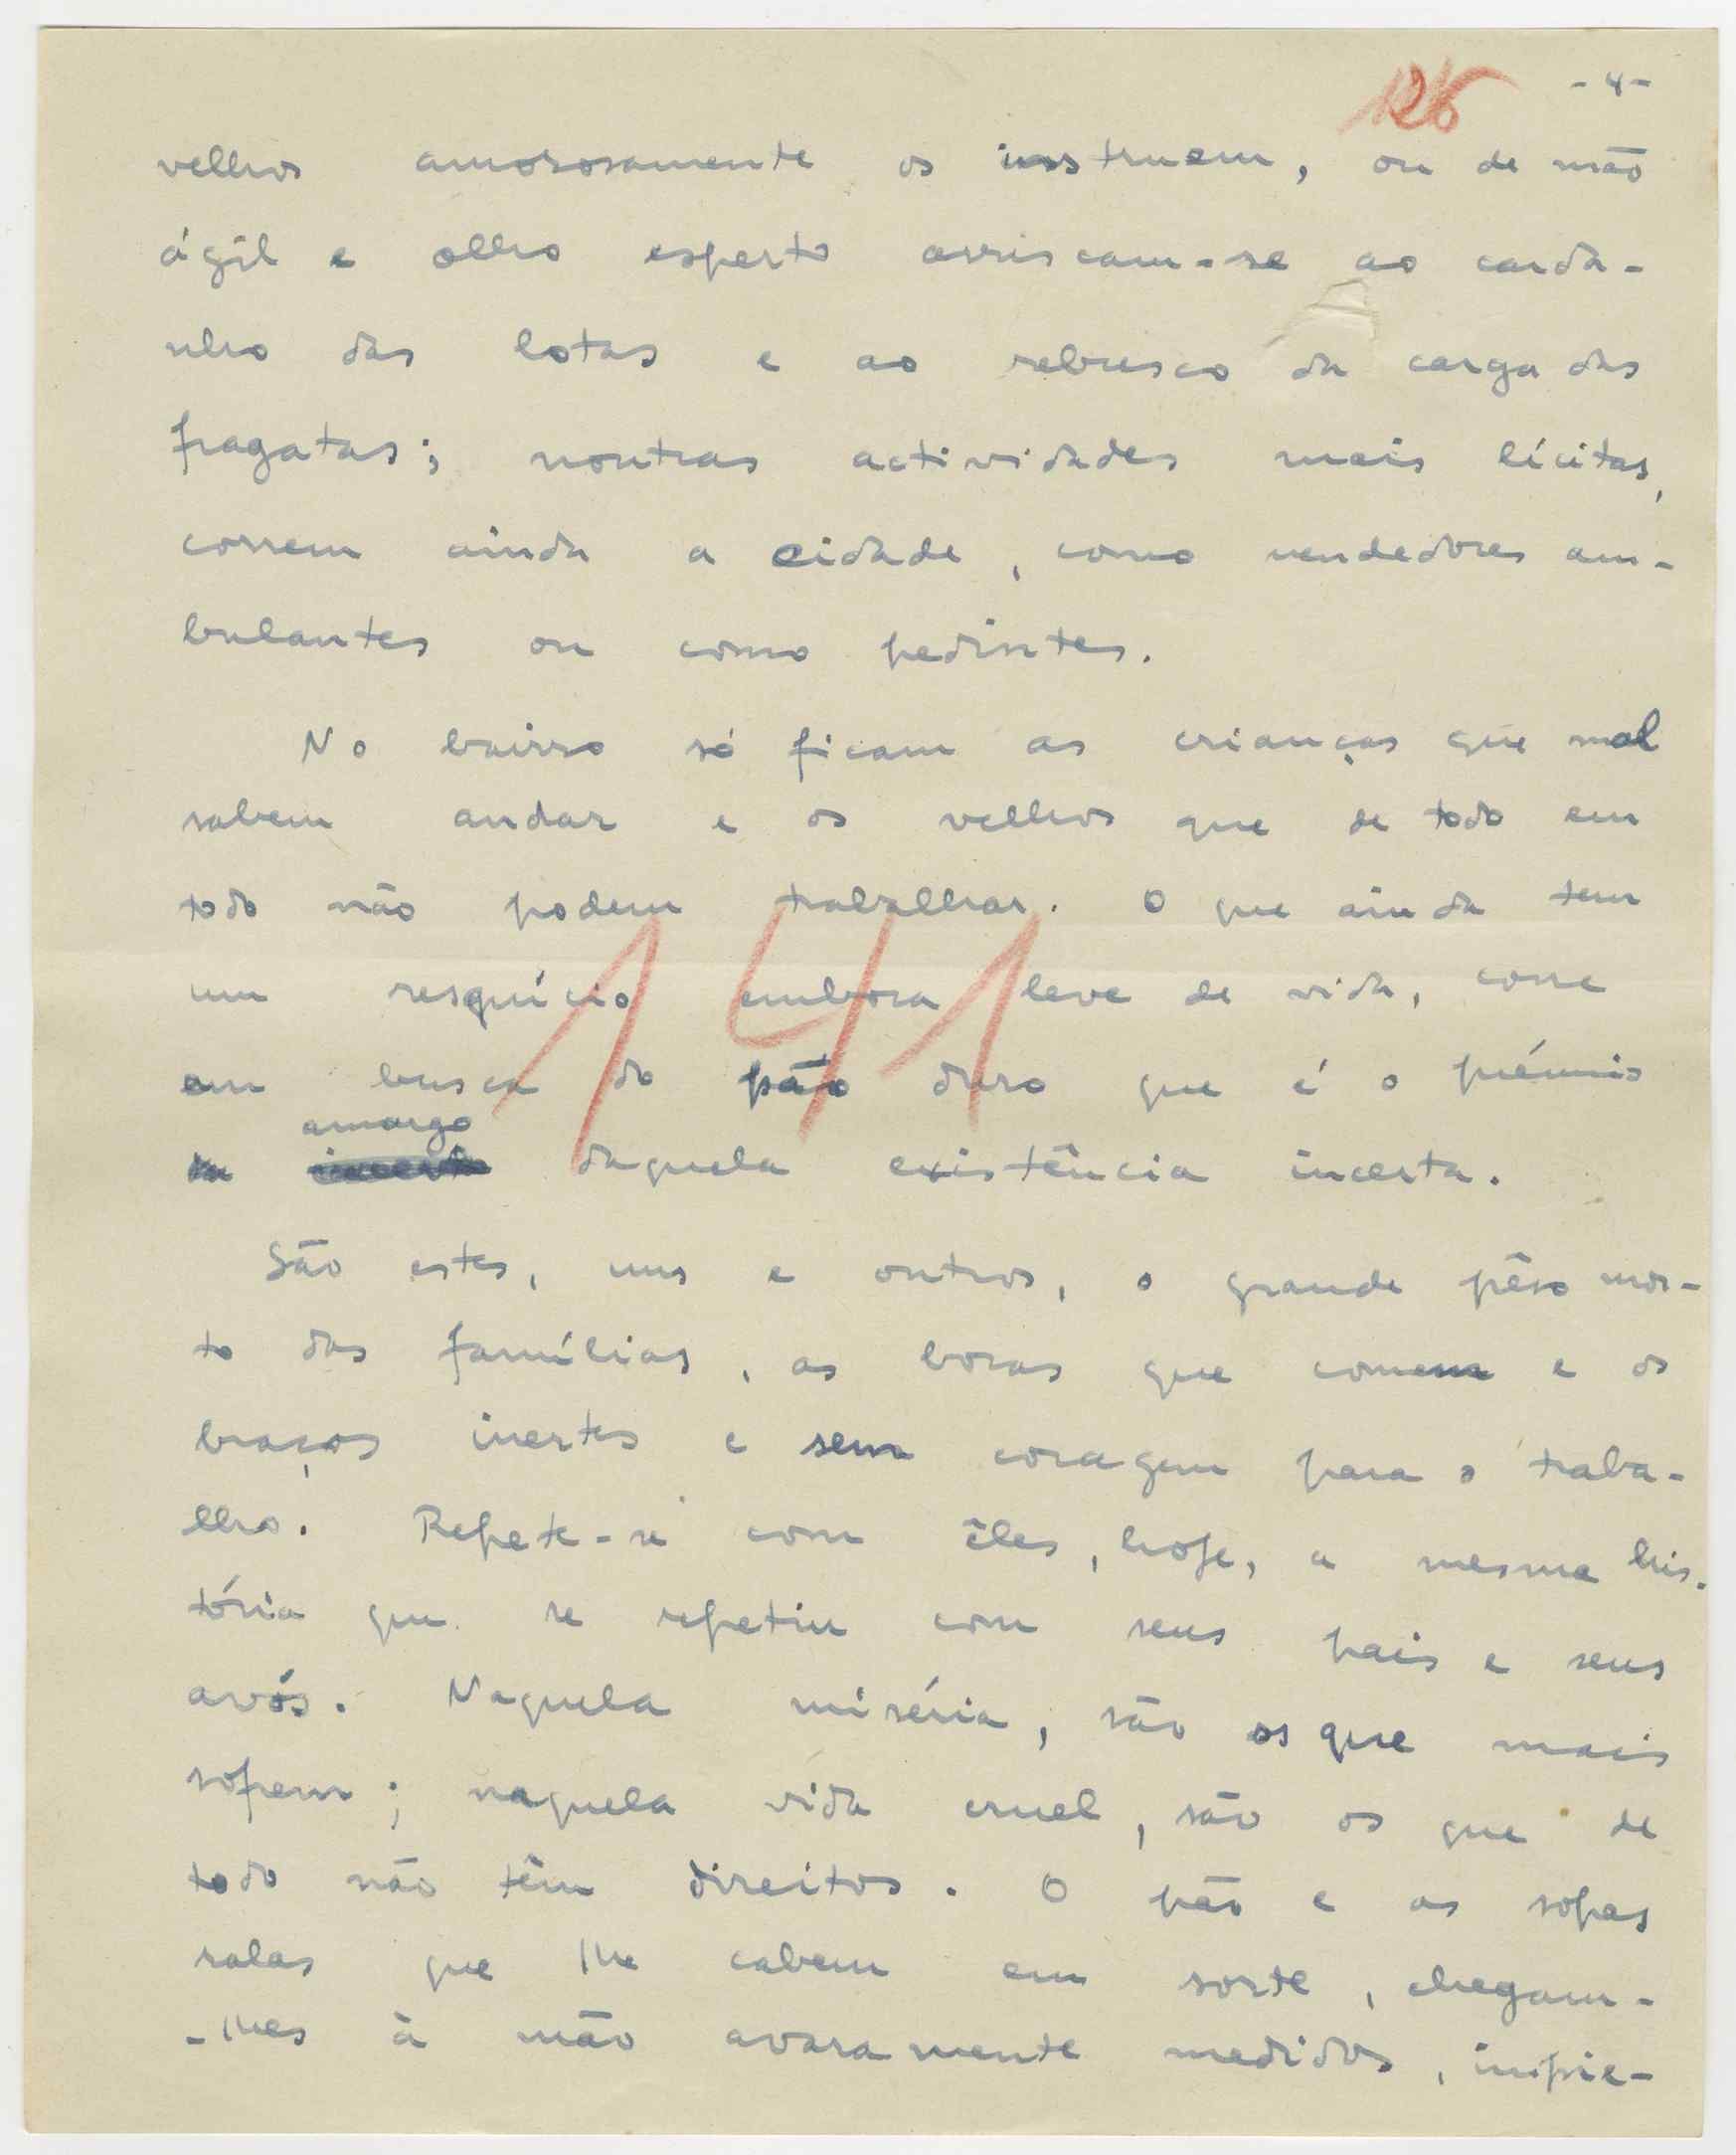 126 - 4 -
velhos amorosamente os instruem, ou de mão
ágil e olho esperto arriscam-se ao carda-
nho das lotas e ao rebusco da carga das
fragatas; noutras actividades mais lícitas,
correm ainda a cidade, como vendedores am-
bulantes ou como pedintes.
No bairro só ficam as crianças que mal
sabem andar e os velhos que de todo em
todo não podem trabalhar. O que ainda tem
um resquício embora leve de vida, corre
em busca do pão duro que é o prémio
amargo
daquela existência incerta.
141
São estes, uns e outros, o grande pêso mor-
to das famílias, as bocas que comem e os
braços inertes e sem coragem para o traba-
lho. Repete-se com êles, hoje, a mesma his-
tória que se repetiu com seus pais e seus
avós. Naquela miséria, são os que mais
sofrem; naquela vida cruel, são os que de
todo não têm direitos. O pão e as sopas
ralas que lhe cabem em sorte, chegam-
-lhes à mão avaramente medidos, impie-